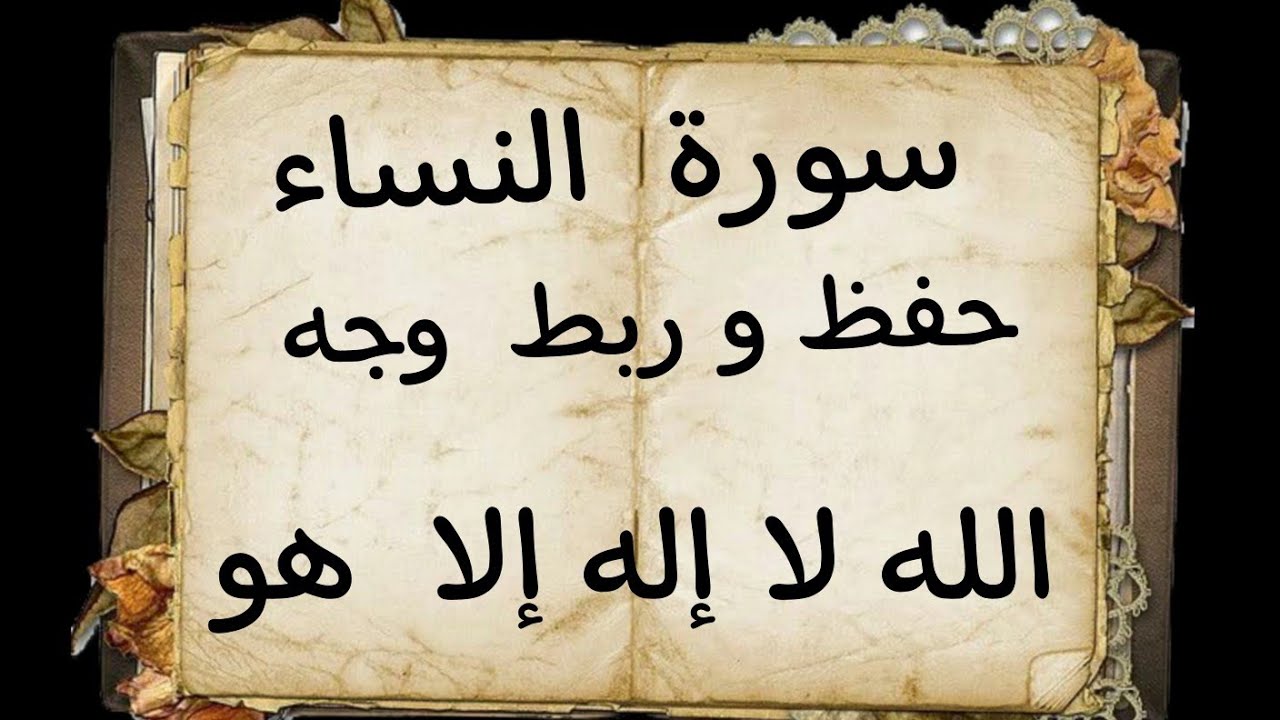 سورة النساء
حفظ و ربط وجه
الله لا إله إلا هو